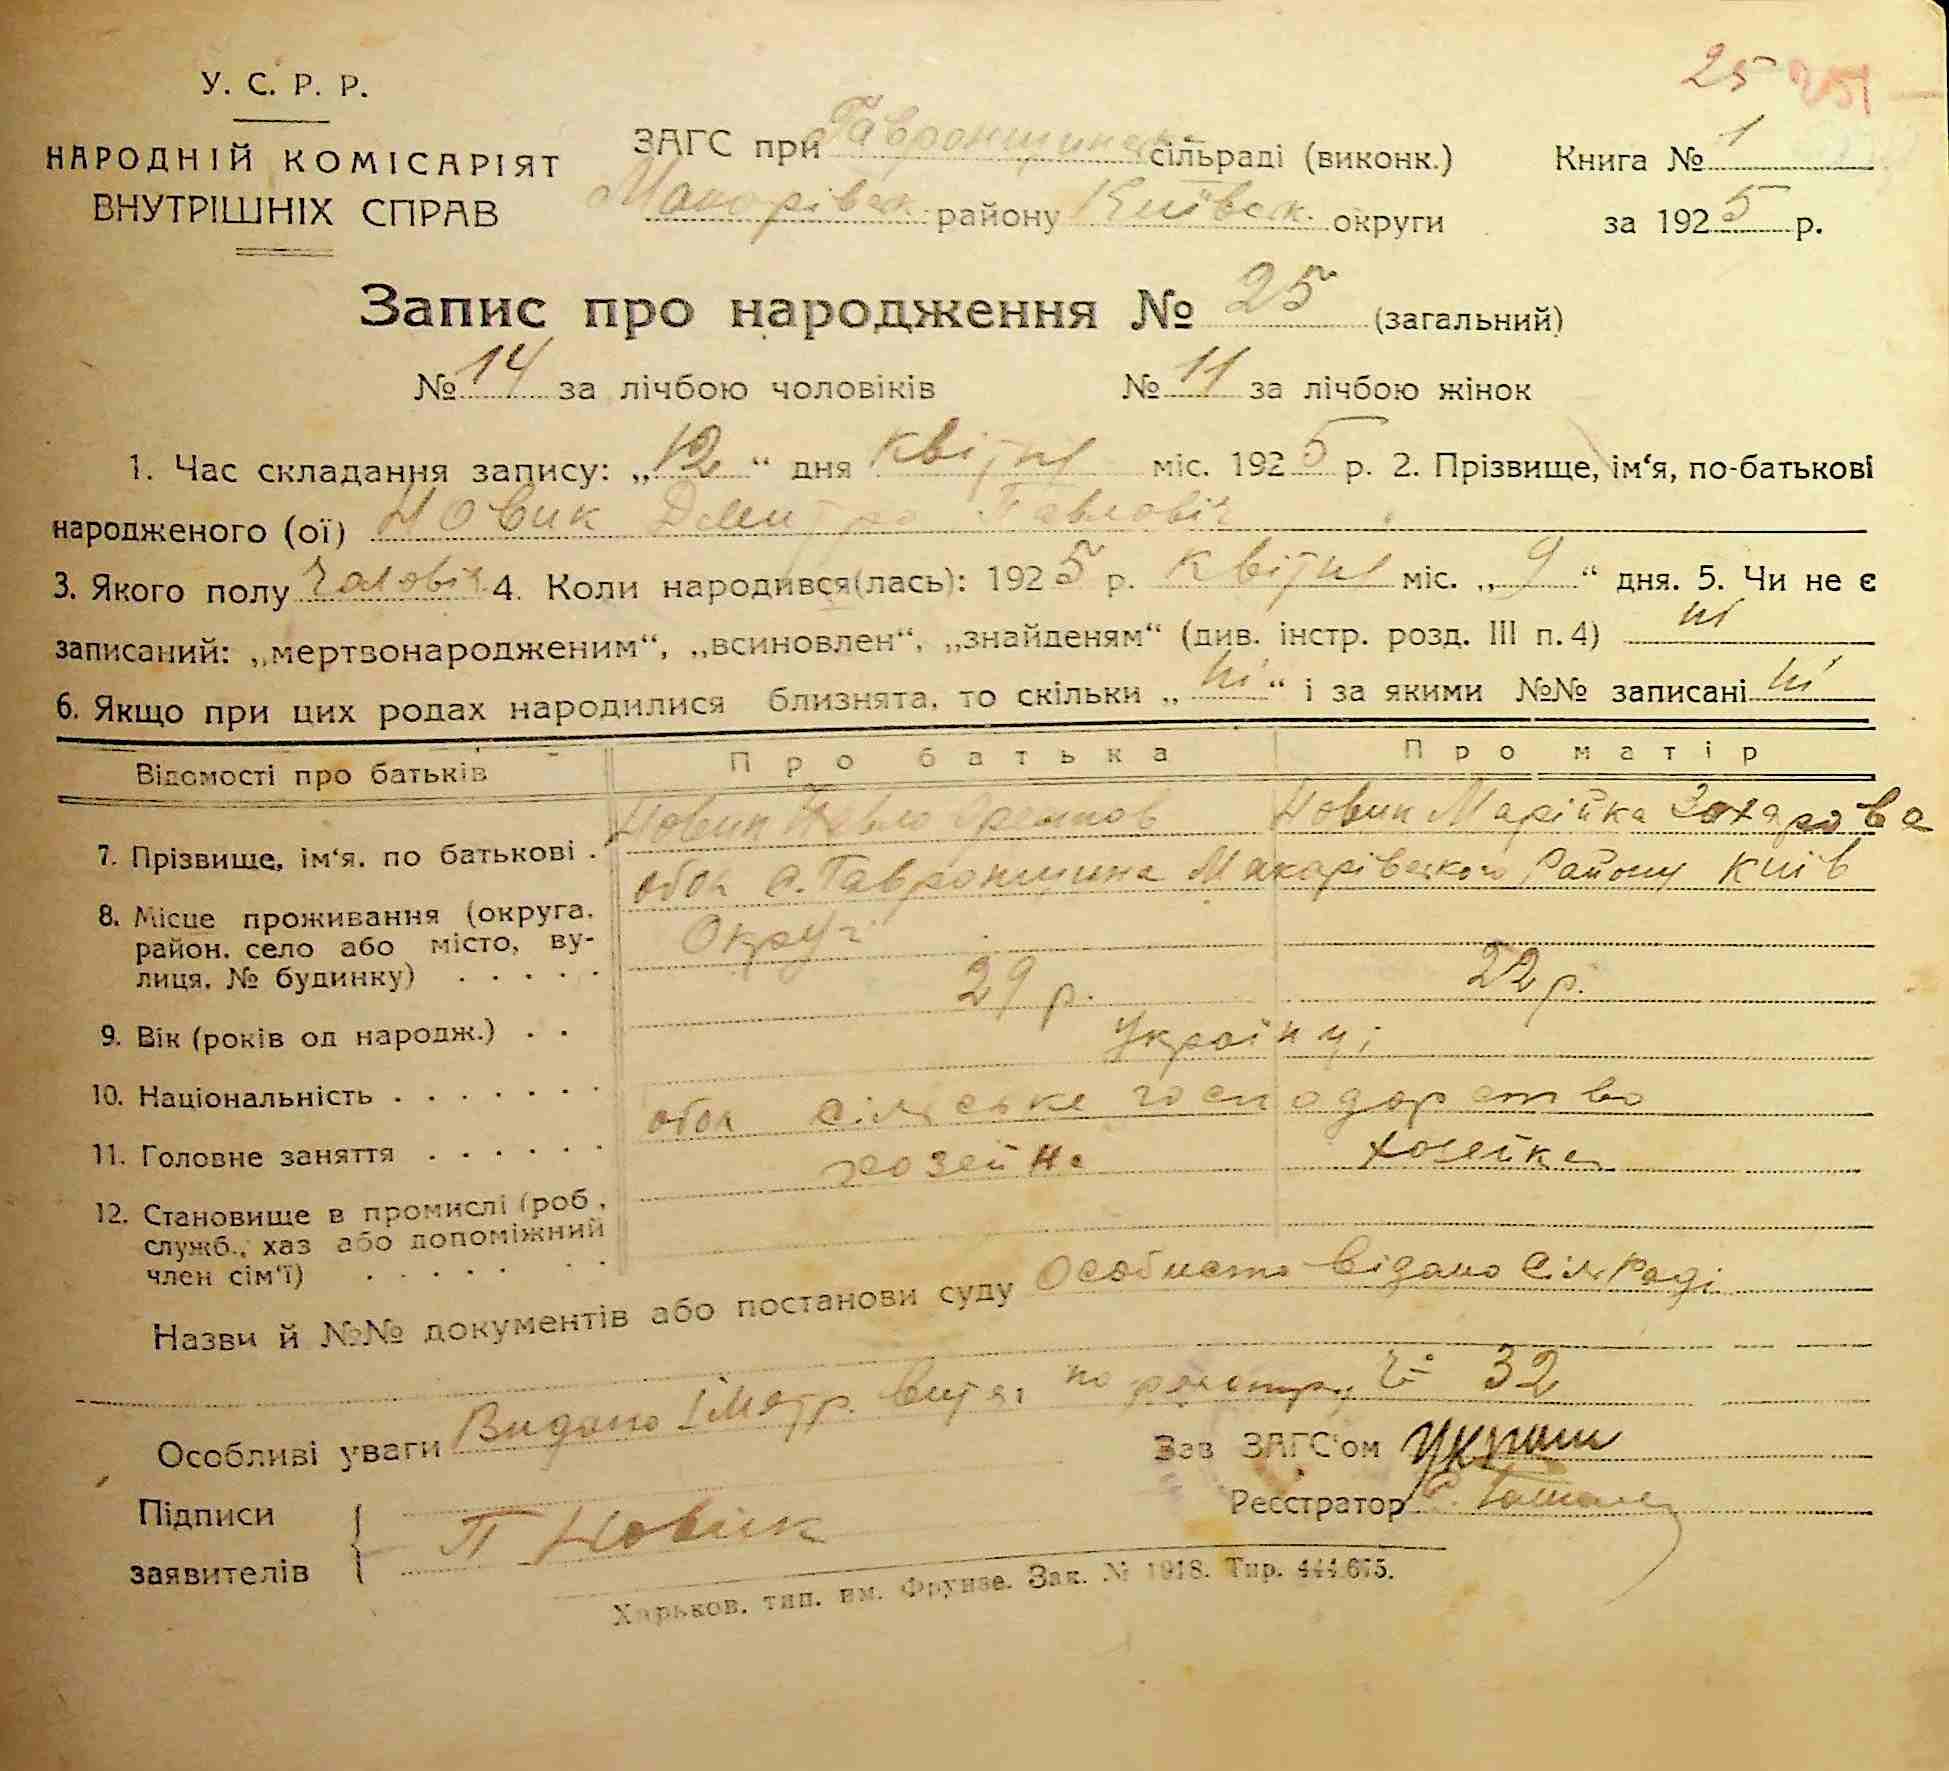 25
У. С. Р. Р.
НАРОДНІЙ КОМІСАРІЯТ
ВНУТРІШНІХ СПРАВ
ЗАГС при Гавронщинск. сільраді (виконк.)
Макарівск. району Київск. округи
Книга № 1
за 1925 р.
Запис про народження № 25 (загальний)
№ 14 за лічбою чоловіків № 11 за лічбою жінок
1. Час складання запису: „12“ дня квітня міс. 1925 р. 2. Прізвище, ім‘я, по-батькові
народженого (ої) Новик Дмитро Павловіч
3. Якого полу чоловіч. 4. Коли народився(лась): 1925 р. квітня міс. „9“ дня. 5. Чи не є
записаний: „мертвонародженим“, „всиновлен“, „знайденям“ (див. інстр. розд. III п. 4) ні
6. Якщо при цих родах народилися близнята, то скільки „ні“ і за якими №№ записані ні
Відомості про батьків Про батька Про матір
7. Прізвище, ім‘я. по батькові . Новик Павло Новик Марійка Захарова
8. Місце проживання (округа, район. село або місто, ву-
лиця. № будинку) . . . . . обоя с. Гавронщина Макарівського Району Київ
Округі
9. Вік (років од народж.) . . 29 р. 22 р.
10. Національність . . . . . . . Українці
11. Головне заняття . . . . . . обоя сільське господарство
12. Становище в промислі (роб.,
служб., хаз або допоміжний
член сім‘ї) . . . . . . . хозейн хозейка
Назви й №№ документів або постанови суду Особисто відомо сільраді
Особливі уваги Видано метр. витяг по реєстру № 32
Зав ЗАГС‘ом
Реєстратор
Підписи
заявителів П Новик
Харьков. тип. им. Фрунзе. Зак. № 1918. Тир. 444.675.